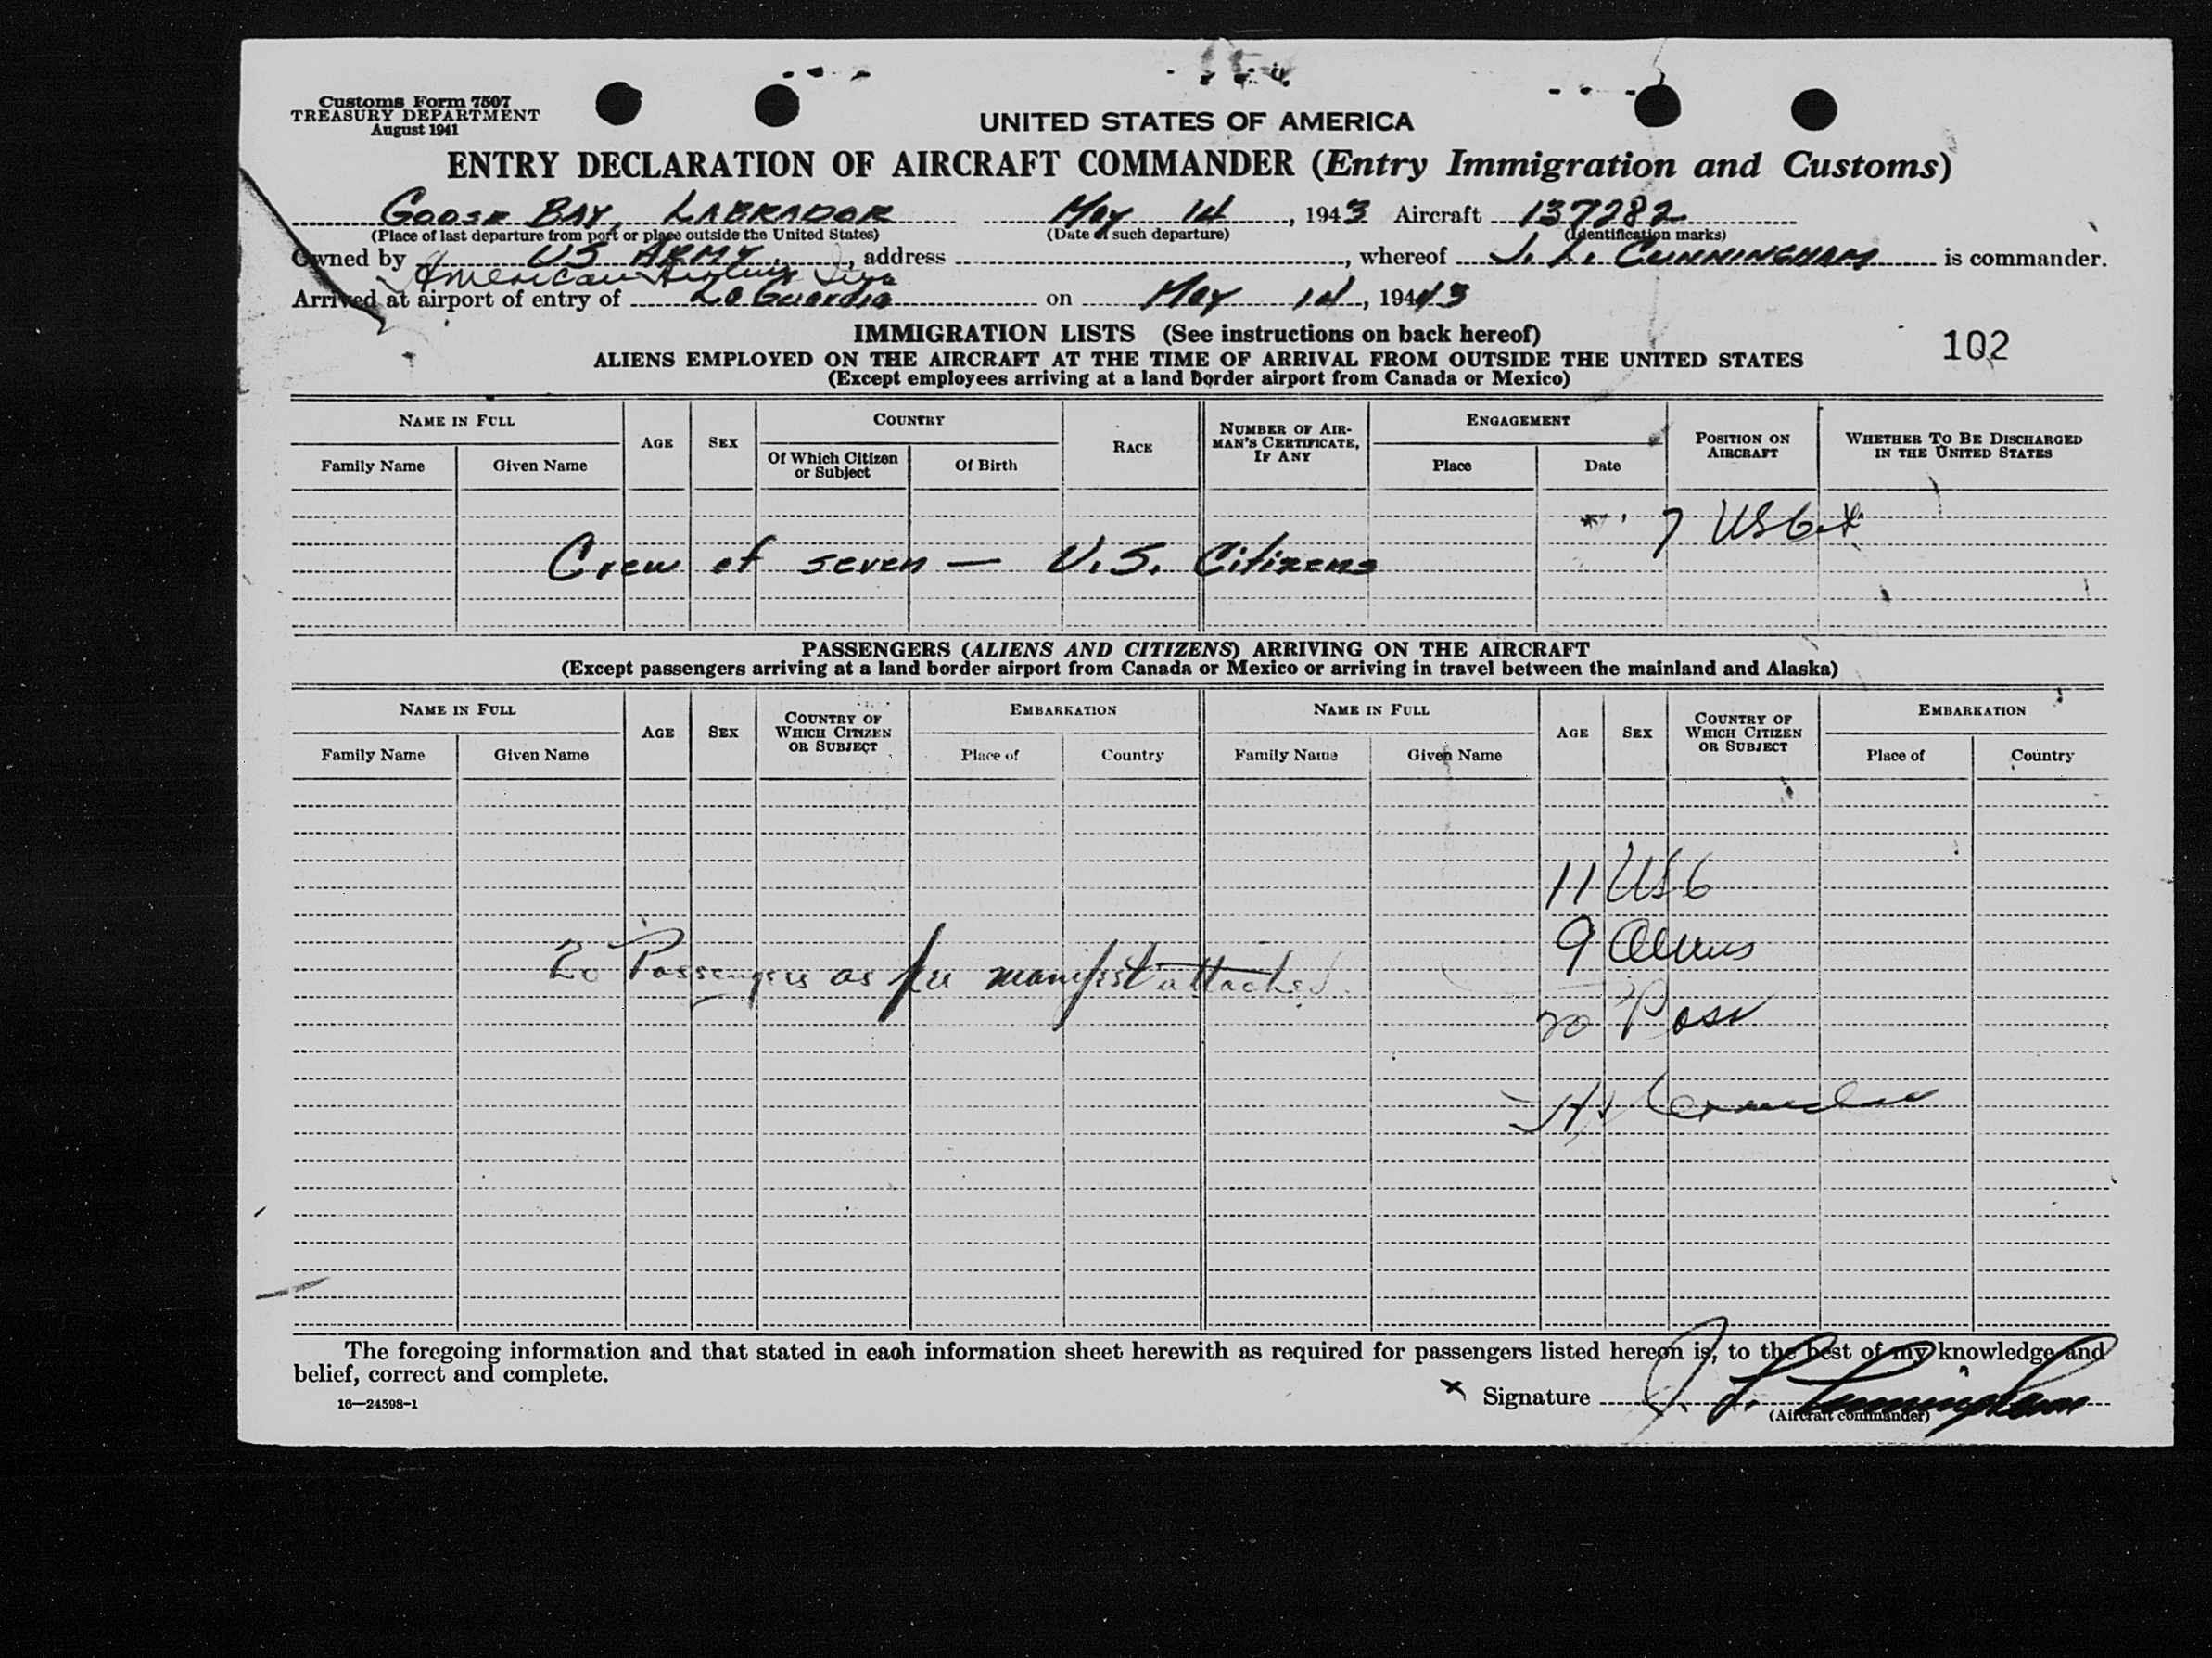 Customs Form 7507
TREASURY DEPARTMENT
August 1941
UNITED STATES OF AMERICA
ENTRY DECLARATION OF AIRCRAFT COMMANDER (Entry Immigration and Customs)
GOOSE BAY, LABRADOR May 14, 1943 Aircraft 137282
(Place of last departure from port or place outside the United States) (Date of such departure) (Identification marks)
Owned by US ARMY, address, whereof J. L. CUNNINGHAM is commander.
American Airlines
Arrived at airport of entry of La Guardia on May 14, 1943
IMMIGRATION LISTS (See instructions on back hereof)
102
ALIENS EMPLOYED ON THE AIRCRAFT AT THE TIME OF ARRIVAL FROM OUTSIDE THE UNITED STATES
(Except employees arriving at a land border airport from Canada or Mexico)
NAME IN FULL AGE SEX COUNTRY RACE NUMBER OF AIRMAN'S CERTIFICATE, IF ANY ENGAGEMENT POSITION ON AIRCRAFT WHETHER TO BE DISCHARGED IN THE UNITED STATES
Family Name Given Name Of Which Citizen or Subject Of Birth Place Date
7 USC
Crew of seven — U.S. Citizens
PASSENGERS (ALIENS AND CITIZENS) ARRIVING ON THE AIRCRAFT
(Except passengers arriving at a land border airport from Canada or Mexico or arriving in travel between the mainland and Alaska)
NAME IN FULL AGE SEX COUNTRY OF WHICH CITIZEN OR SUBJECT EMBARKATION NAME IN FULL AGE SEX COUNTRY OF WHICH CITIZEN OR SUBJECT EMBARKATION
Family Name Given Name Place of Country Family Name Given Name Place of Country
11 USC
9 Aliens
20 Passengers as per manifest attached.
20 Pass
The foregoing information and that stated in each information sheet herewith as required for passengers listed hereon is, to the best of my knowledge and
belief, correct and complete.
x Signature J. L. Cunningham
16—24598-1
(Aircraft commander)